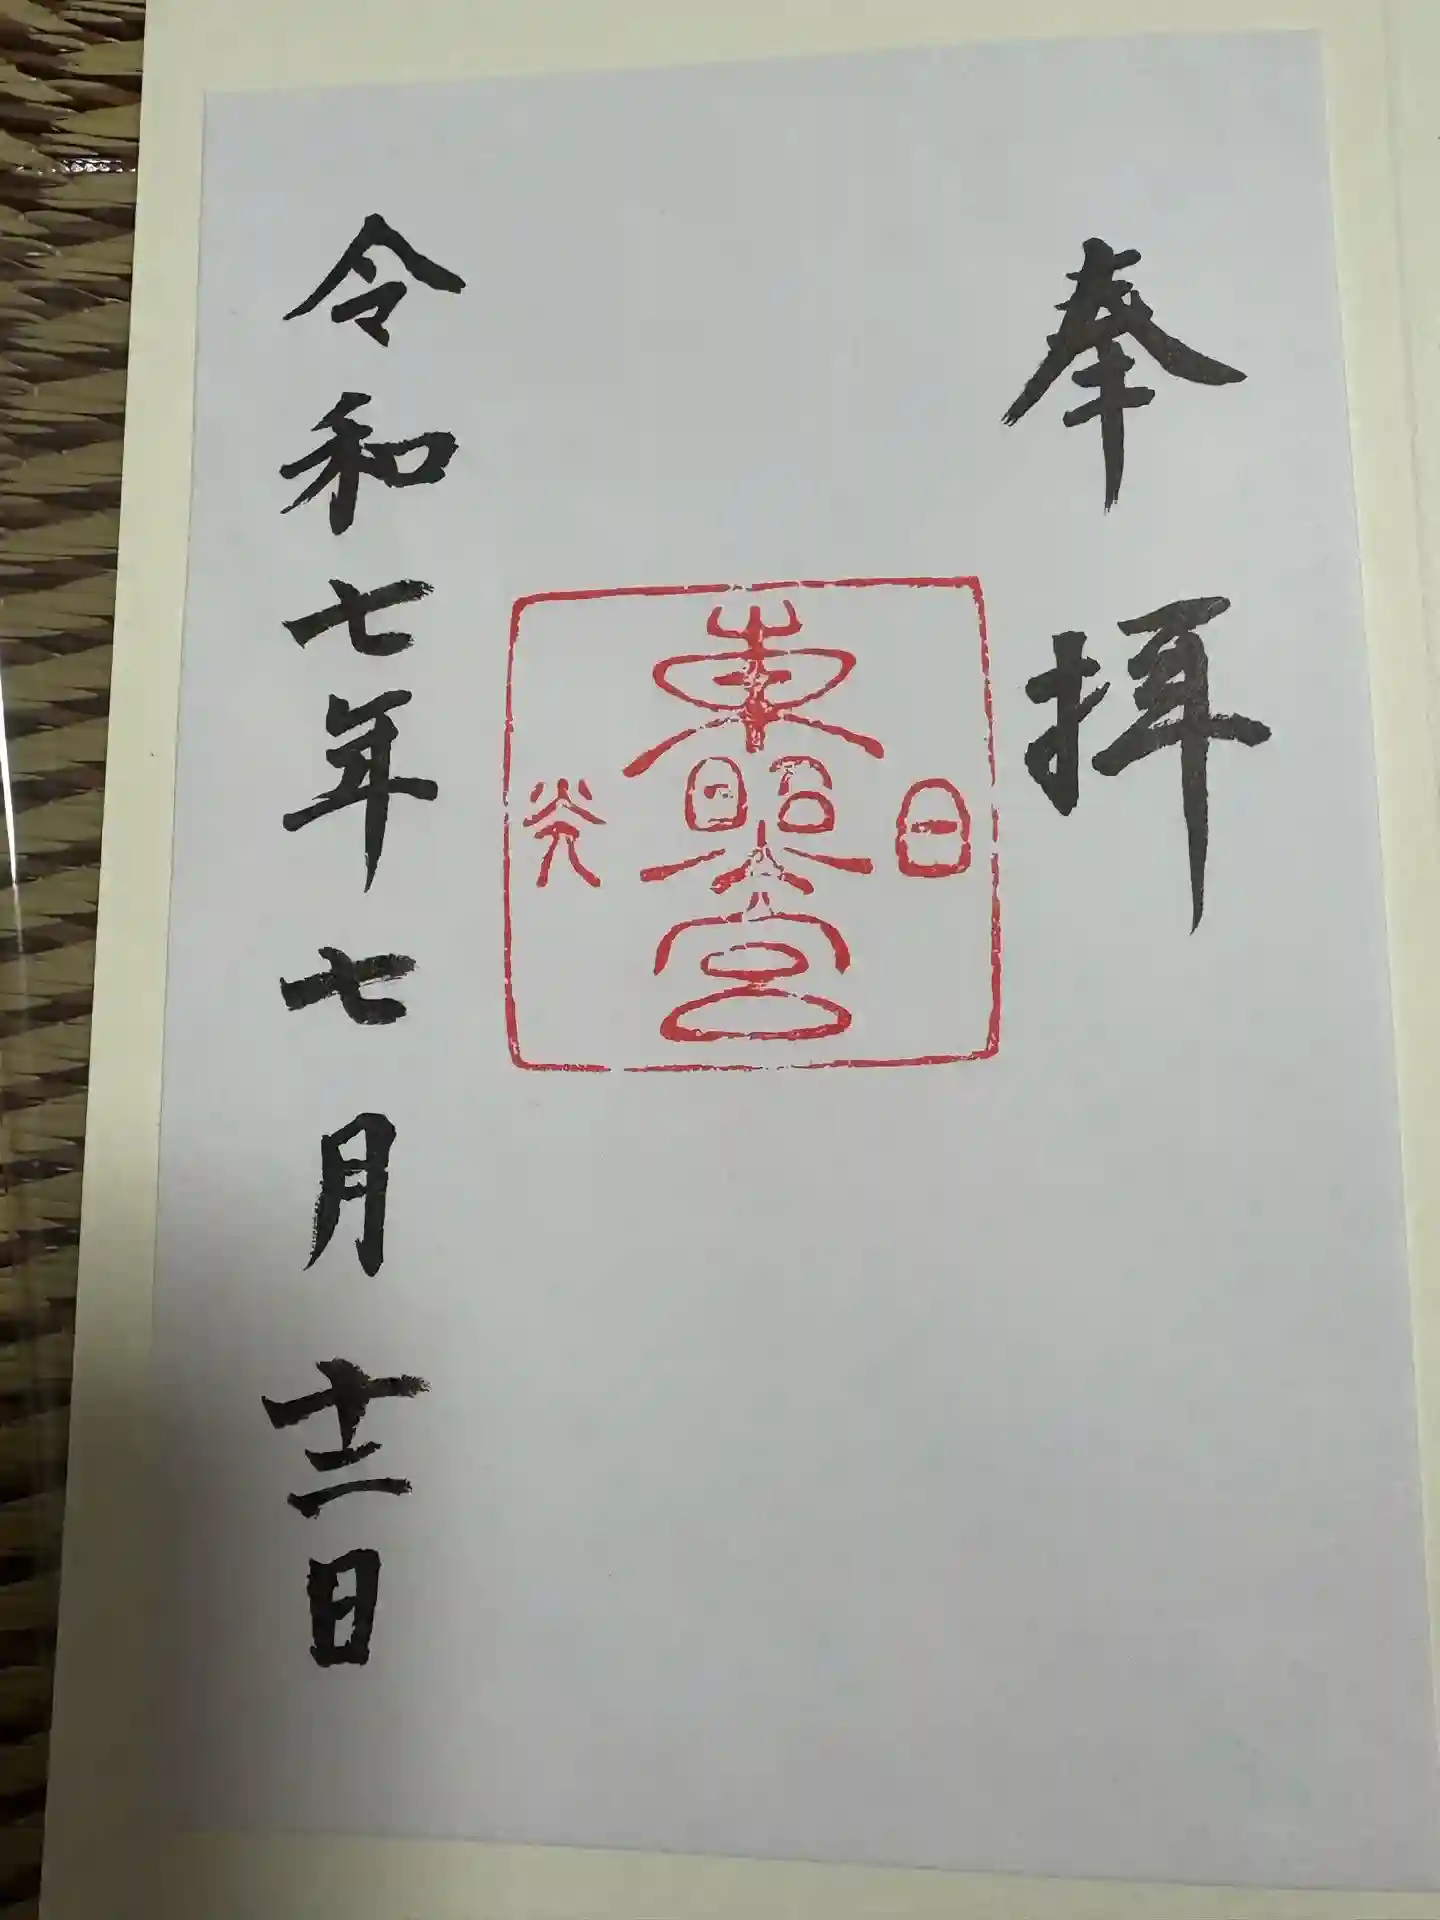 奉拝
日光
東照宮
令和七年七月十三日